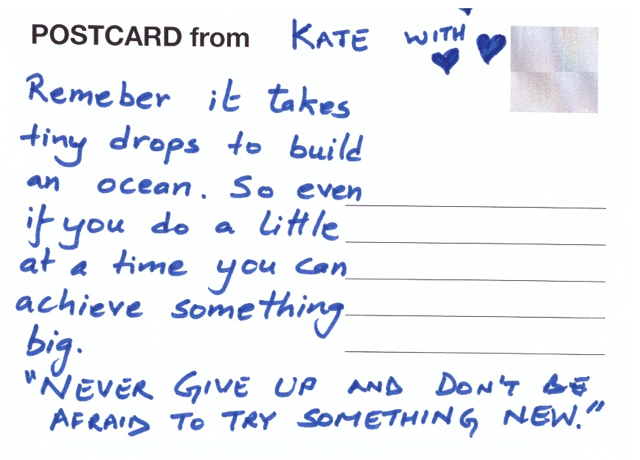 POSTCARD from KATE WITH
Remeber it takes
tiny drops to build
an ocean. So even
if you do a little
at a time you can
achieve something
big.
"NEVER GIVE UP AND DON'T BE
AFRAID TO TRY SOMETHING NEW."